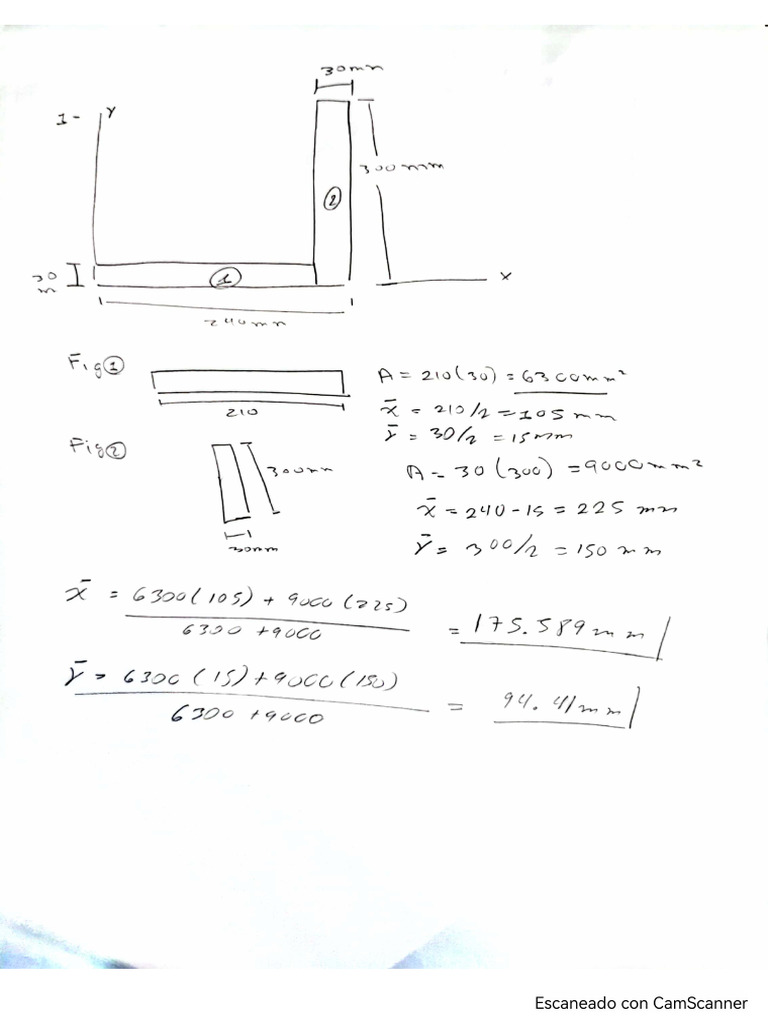 30mm
1- Y
300mm
②
30
m
①
X
240mm
Fig①
210
A = 210(30) = 6300mm²
x̄ = 210/2 = 105 mm
ȳ = 30/2 = 15mm
Fig②
300mm
30mm
A = 30 (300) = 9000mm²
x̄ = 240-15 = 225 mm
Ȳ = 300/2 = 150 mm
x̄ = 6300(105) + 9000(225) / 6300 + 9000 = 175.589mm
Ȳ = 6300(15) + 9000(150) / 6300 + 9000 = 94.41mm
Escaneado con CamScanner